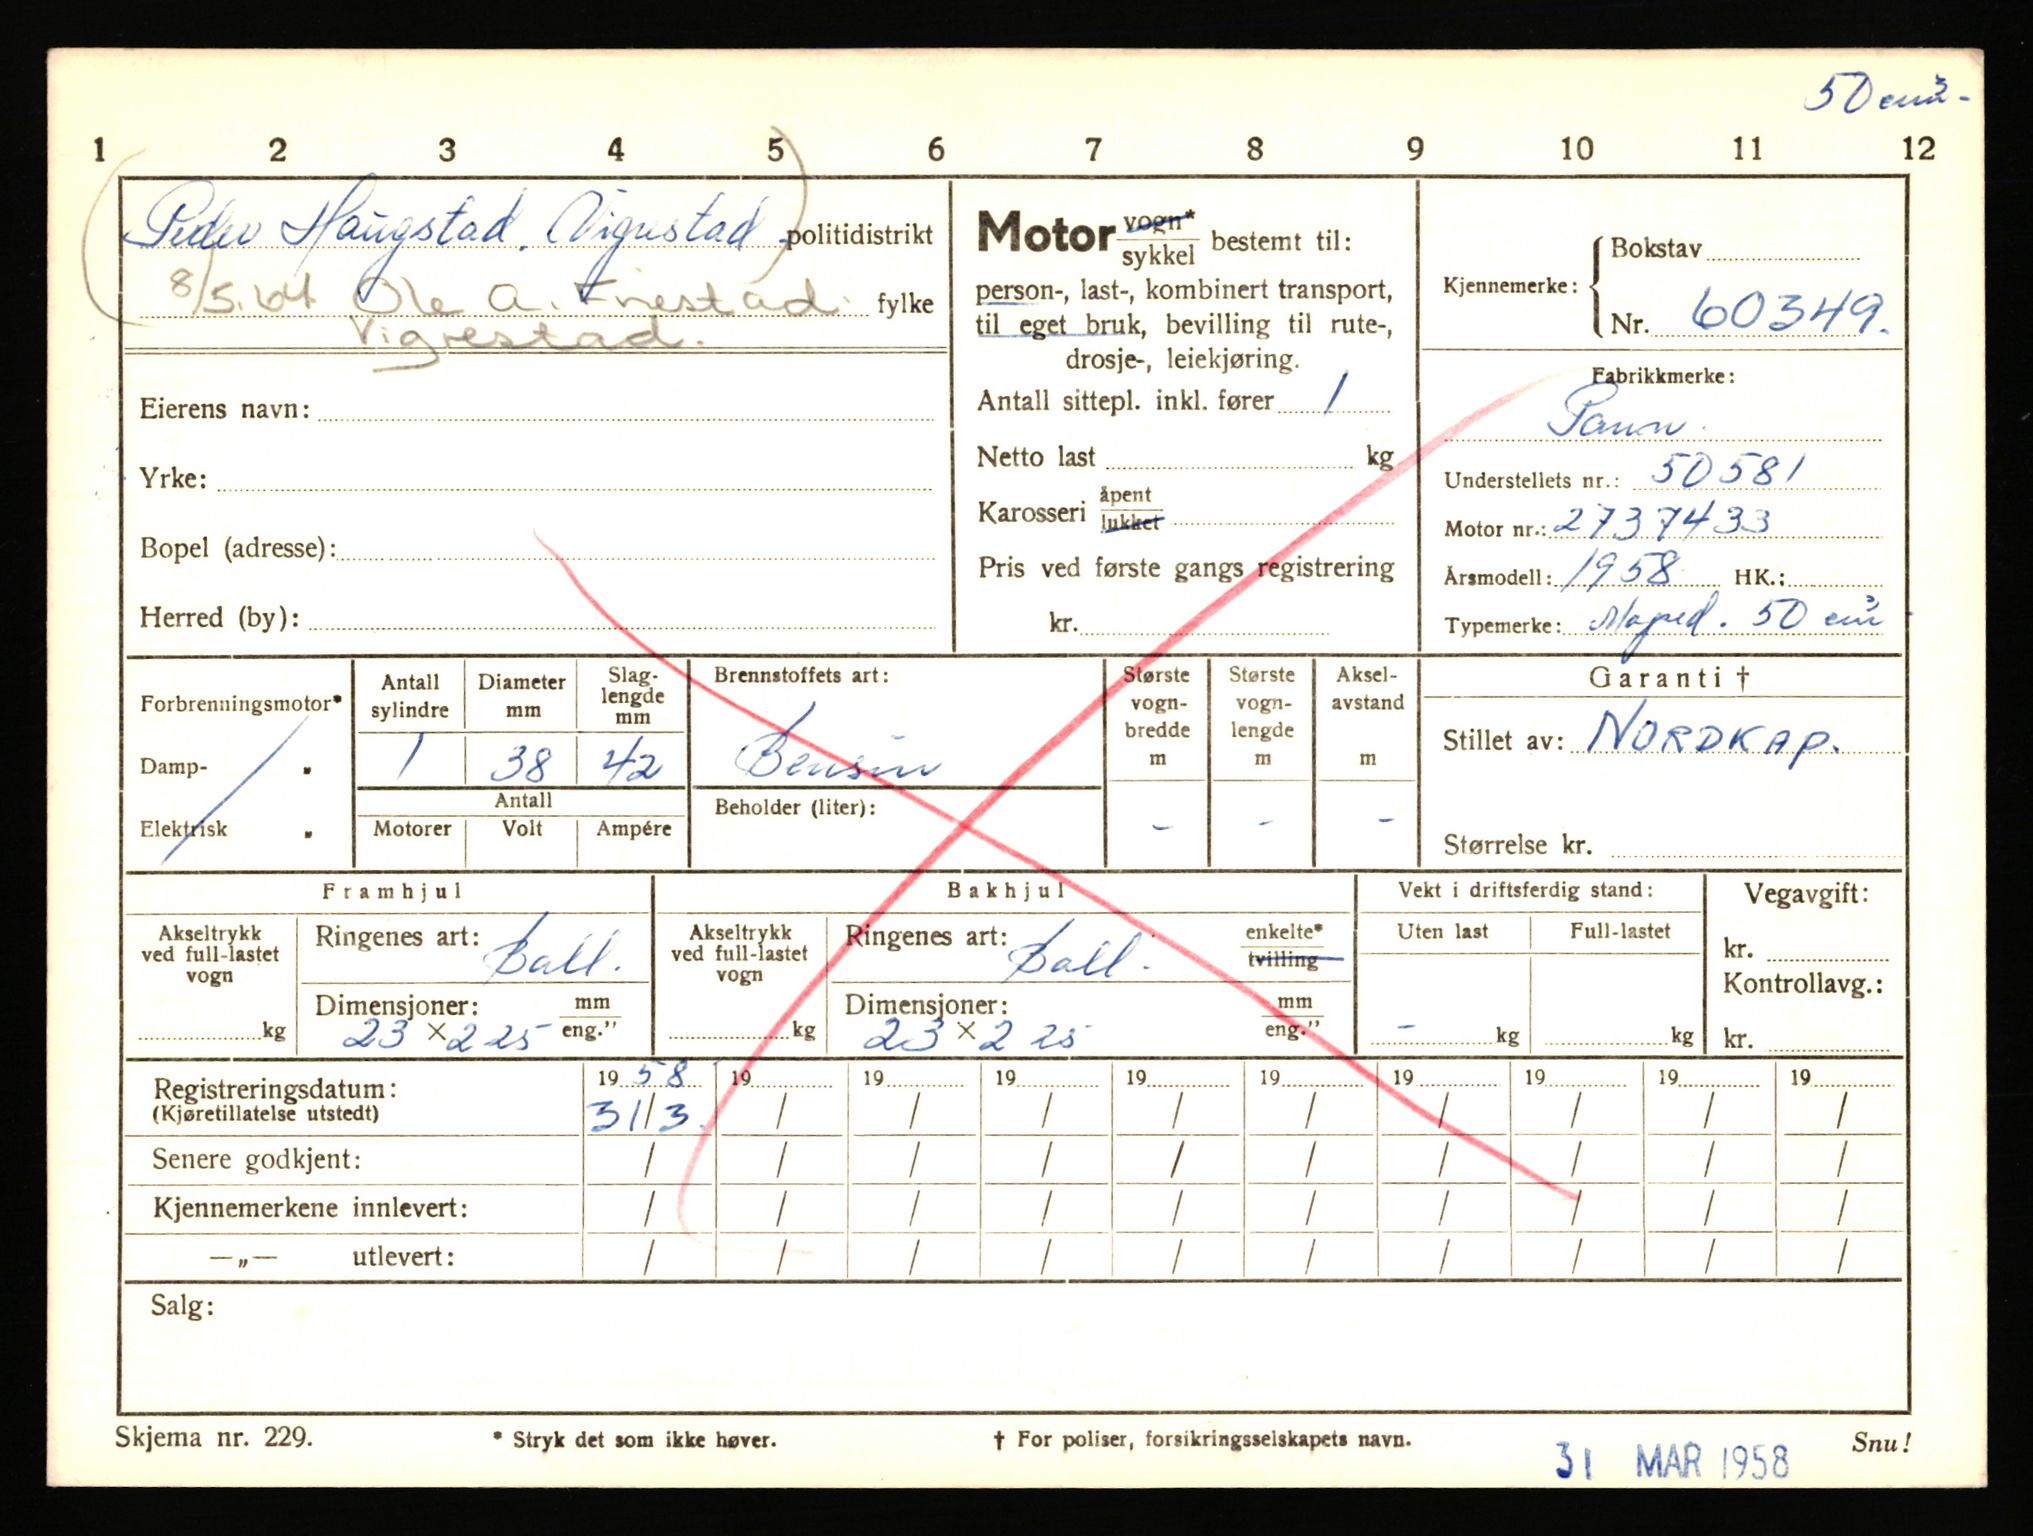 50 cm³-
1 2 3 4 5 6 7 8 9 10 11 12
Peder Haugstad. Vigrestad politidistrikt
8/5.64 Ole A. Friestad. fylke
Vigrestad.
Eierens navn:
Yrke:
Bopel (adresse):
Herred (by):
Motor vogn* sykkel bestemt til:
person-, last-, kombinert transport,
til eget bruk, bevilling til rute-,
drosje-, leiekjøring.
Antall sittepl. inkl. fører 1
Netto last kg
Karosseri åpent lukket
Pris ved første gangs registrering
kr.
Kjennemerke: Bokstav
Nr. 60349.
Fabrikkmerke:
Understellets nr.: 50581
Motor nr.: 2737433
Årsmodell: 1958 HK.:
Typemerke: Moped. 50 cm³
Forbrenningsmotor*
Damp- „
Elektrisk „
Antall sylindre Diameter mm Slag-lengde mm
1 38 42
Antall
Motorer Volt Ampére
Brennstoffets art:
Bensin
Beholder (liter):
Største vogn-bredde m Største vogn-lengde m Aksel-avstand m
- - -
Garanti †
Stillet av: NORDKAP.
Størrelse kr.
Framhjul
Akseltrykk ved full-lastet vogn
kg
Ringenes art: Ball.
Dimensjoner: mm eng."
23 x 2 25
Bakhjul
Akseltrykk ved full-lastet vogn
kg
Ringenes art: Ball. enkelte* tvilling
Dimensjoner: mm eng."
23 x 2 25
Vekt i driftsferdig stand:
Uten last Full-lastet
- kg kg
Vegavgift:
kr.
Kontrollavg.:
kr.
Registreringsdatum: 1958 19 19 19 19 19 19 19 19 19
(Kjøretillatelse utstedt) 31/3. / / / / / / / / /
Senere godkjent: / / / / / / / / / /
Kjennemerkene innlevert: / / / / / / / / / /
—„— utlevert: / / / / / / / / / /
Salg:
Skjema nr. 229. * Stryk det som ikke høver. † For poliser, forsikringsselskapets navn. Snu!
31 MAR 1958